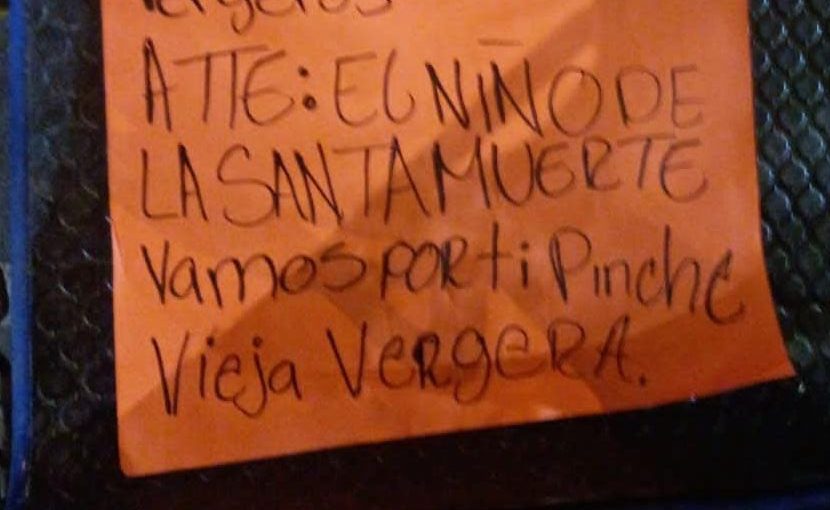 vergeros
ATTE: EL NIÑO DE
LA SANTA MUERTE
Vamos POR ti Pinche
Vieja VergeRA.